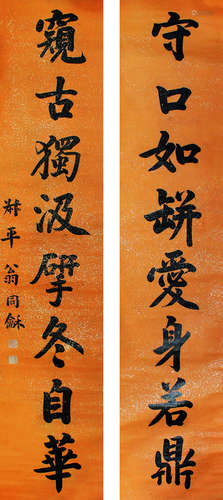 守口如缾愛身若鼎
窺古獨汲冬自華
叔平 翁同龢